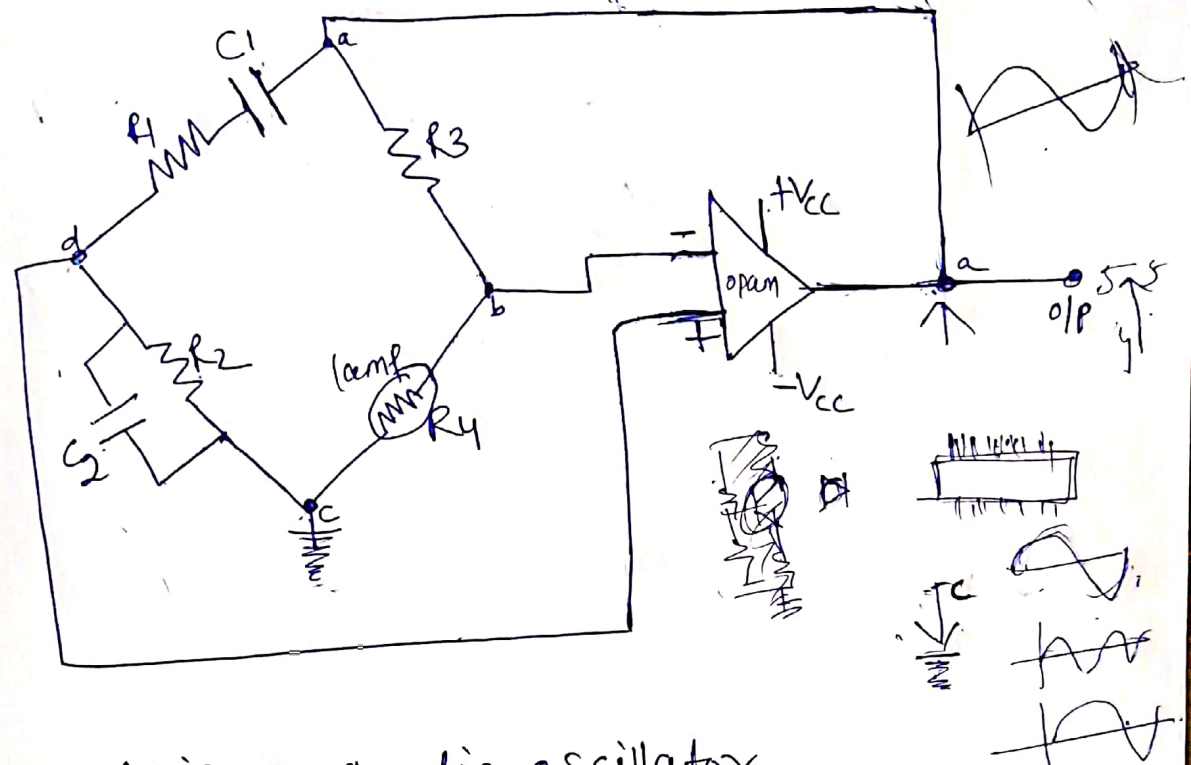 C1
a
R1
R3
d
+VCC
-
opam
a
O/P
b
+
R2
lamp
R4
-VCC
C2
c
c
oscillator